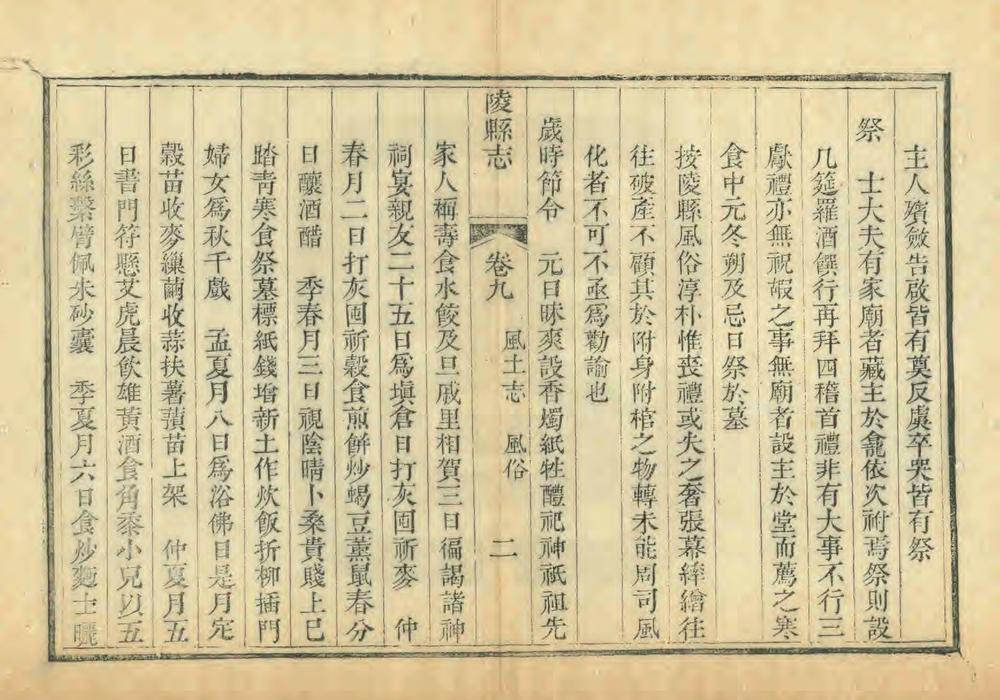 主人殯斂告啟皆有奠反虞卒哭皆有祭
祭　士大夫有家廟者藏主於龕依次祔焉祭則設
几筵羅酒饌行再拜四稽首禮非有大事不行三
獻禮亦無祝嘏之事無廟者設主於堂而薦之寒
食中元冬朔及忌日祭於墓
按陵縣風俗淳朴惟喪禮或失之奢張幕繂繪往
往破產不顧其於附身附棺之物轉未能周司風
化者不可不亟爲勸諭也
歲時節令　元日昧爽設香燭紙牲醴祀神祇祖先
陵縣志　卷九　風土志　風俗　二
家人稱壽食水餃及旦戚里相賀三日徧謁諸神
祠宴親友二十五日爲塡倉日打灰囤祈麥　仲
春月二日打灰囤祈穀食煎餅炒蝎豆薰鼠春分
日釀酒醋　季春月三日視陰晴卜桑貴賤上巳
踏靑寒食祭墓標紙錢增新土作炊飯折柳插門
婦女爲秋千戲　孟夏月八日爲浴佛日是月定
穀苗收麥繅繭收蒜扶薯蕷苗上架　仲夏月五
日書門符懸艾虎晨飮雄黃酒食角黍小兒以五
彩絲繫臂佩朱砂囊　季夏月六日食炒麪士曬